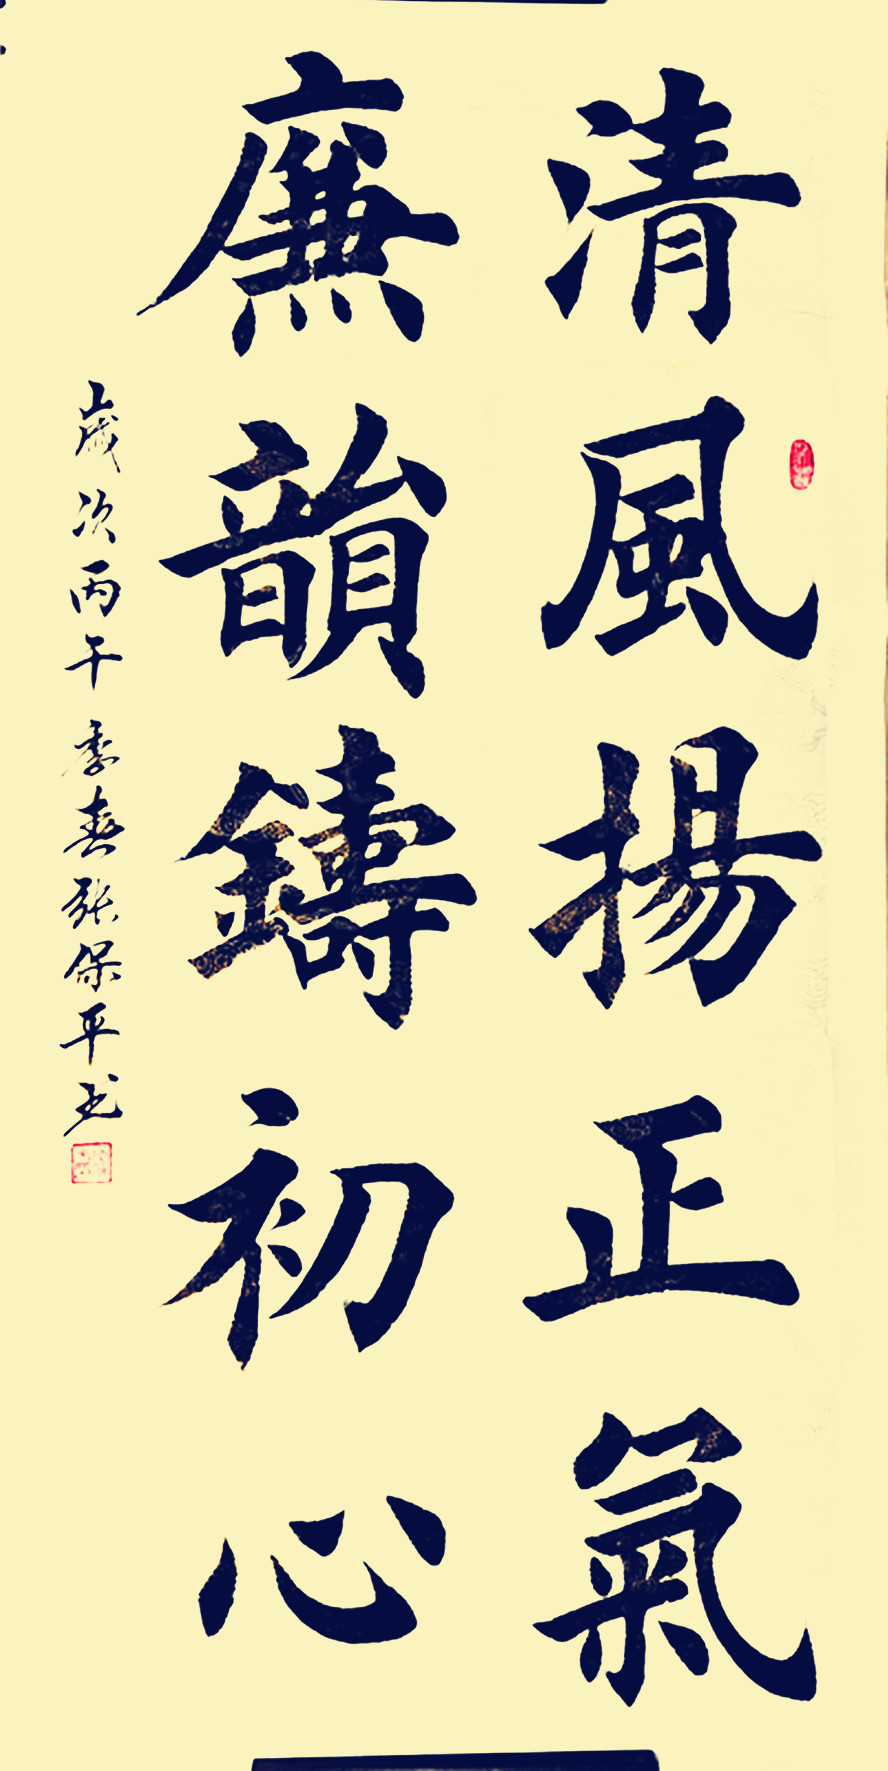 清風揚正氣
廉韻鑄初心
歲次丙午季春張保平书